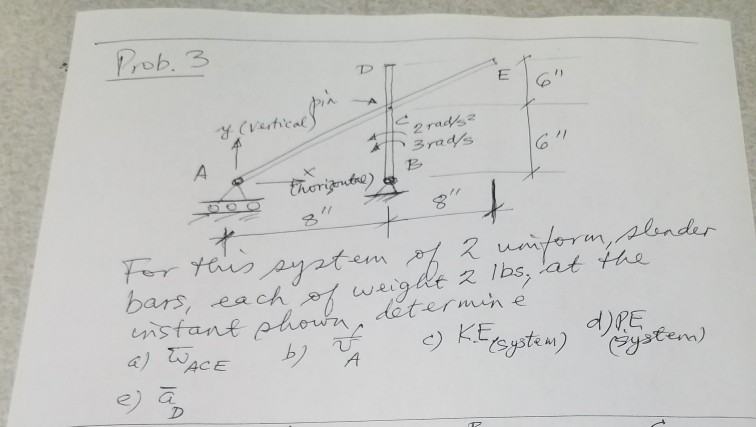 Prob. 3
D
E
6"
pin
y (vertical)
C
2 rad/s²
3 rad/s
6"
A
x
(horizontal)
B
8"
8"
For this system of 2 uniform, slender
bars, each of weight 2 lbs; at the
instant shown, determine
a) ω̅ACE b) v̅A c) K.E(system) d) P.E (system)
e) a̅D